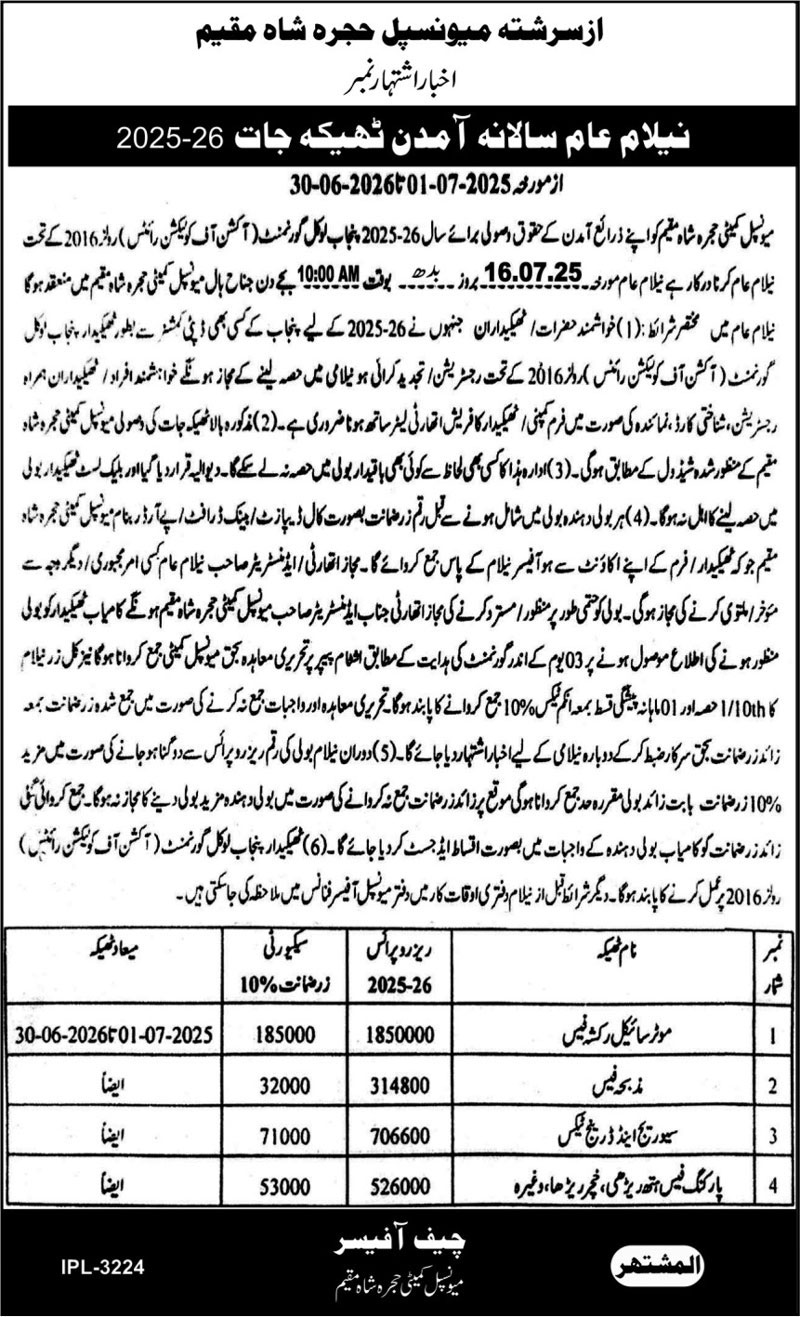 ازسرشتہ میونسپل حجرہ شاہ مقیم
اخبار اشتہار نمبر
نیلام عام سالانہ آمدن ٹھیکہ جات 2025-26
از مورخہ 01-07-2025 تا 30-06-2026
میونسپل کمیٹی حجرہ شاہ مقیم کو اپنے ذرائع آمدن کے حقوق وصولی برائے سال 2025-26 پنجاب لوکل گورنمنٹ (آکشن آف کولیکشن رائٹس) رولز 2016 کے تحت
نیلام عام کرنا درکار ہے نیلام عام مورخہ 16.07.25 بروز بدھ بوقت 10:00 AM بجے دن جناح ہال میونسپل کمیٹی حجرہ شاہ مقیم میں منعقد ہوگا
نیلام عام میں مختصر شرائط : (1) خواشمند حضرات / ٹھیکیداران جنہوں نے 2025-26 کے لیے پنجاب کے کسی بھی ڈپٹی کمشنر سے بطور ٹھیکیدار پنجاب لوکل
گورنمنٹ (آکشن آف کولیکشن رائٹس) رولز 2016 کے تحت رجسٹریشن / تجدید کرائی ہو نیلامی میں حصہ لینے کے مجاز ہونگے خواہشمند افراد / ٹھیکیداران ہمراہ
رجسٹریشن، شناختی کارڈ، نمائندہ کی صورت میں فرم کمپنی / ٹھیکیدار کا فریش اتھارٹی لیٹر ساتھ ہونا ضروری ہے۔ (2) مذکورہ بالا ٹھیکہ جات کی وصولی میونسپل کمیٹی حجرہ شاہ
مقیم کے منظور شدہ شیڈول کے مطابق ہوگی۔ (3) ادارہ ہذا کا کسی بھی لحاظ سے کوئی بھی باقیدار بولی میں حصہ نہ لے سکے گا۔ دیوالیہ قرار دیا گیا اور بلیک لسٹ ٹھیکیدار بولی
میں حصہ لینے کا اہل نہ ہوگا۔ (4) ہر بولی دہندہ بولی میں شامل ہونے سے قبل رقم زرضمانت بصورت کال ڈیپازٹ / بینک ڈرافٹ / پے آرڈر بنام میونسپل کمیٹی حجرہ شاہ
مقیم جو کہ ٹھیکیدار / فرم کے اپنے اکاؤنٹ سے ہو آفیسر نیلام کے پاس جمع کروائے گا۔ مجاز اتھارٹی / ایڈمنسٹریٹر صاحب نیلام عام کسی امر مجبوری / دیگر وجہ سے
مؤخر / ملتوی کرنے کی مجاز ہوگی۔ بولی کو حتمی طور پر منظور / مسترد کرنے کی مجاز اتھارٹی جناب ایڈمنسٹریٹر صاحب میونسپل کمیٹی حجرہ شاہ مقیم ہونگے کامیاب ٹھیکیدار کو بولی
منظور ہونے کی اطلاع موصول ہونے پر 03 یوم کے اندر گورنمنٹ کی ہدایت کے مطابق اشٹام پیپر پر تحریری معاہدہ بحق میونسپل کمیٹی جمع کروانا ہوگا نیز کل زر نیلام
کا 1/10th حصہ اور 01 ماہانہ پیشگی قسط بمعہ انکم ٹیکس 10% جمع کروانے کا پابند ہوگا۔ تحریری معاہدہ اور واجبات جمع نہ کرنے کی صورت میں جمع شدہ زرضمانت بمعہ
زائد زرضمانت بحق سرکار ضبط کر کے دوبارہ نیلامی کے لیے اخبار اشتہار دیا جائے گا۔ (5) دوران نیلام بولی کی رقم ریزرو پرائس سے دوگنا ہو جانے کی صورت میں مزید
10% زرضمانت بابت زائد بولی مقررہ حد جمع کروانا ہوگی موقع پر زائد زرضمانت جمع نہ کروانے کی صورت میں بولی دہندہ مزید بولی دینے کا مجاز نہ ہوگا۔ جمع کروائی گئی
زائد زرضمانت کو کامیاب بولی دہندہ کے واجبات میں بصورت اقساط ایڈجسٹ کر دیا جائے گا۔ (6) ٹھیکیدار پنجاب لوکل گورنمنٹ (آکشن آف کولیکشن رائٹس)
رولز 2016 پر عمل کرنے کا پابند ہوگا۔ دیگر شرائط قبل از نیلام دفتری اوقات کار میں دفتر میونسپل آفیسر فنانس میں ملاحظہ کی جا سکتی ہیں۔
نمبر شمار نام ٹھیکہ ریزرو پرائس 2025-26 سیکیورٹی زرضمانت 10% میعاد ٹھیکہ
1 موٹر سائیکل رکشہ فیس 1850000 185000 01-07-2025 تا 30-06-2026
2 مذبحہ فیس 314800 32000 ایضاً
3 سیوریج اینڈ ڈرینج ٹیکس 706600 71000 ایضاً
4 پارکنگ فیس ہتھ ریڑھی، خچر ریڑھا، وغیرہ 526000 53000 ایضاً
المشتہر
چیف آفیسر
میونسپل کمیٹی حجرہ شاہ مقیم
IPL-3224